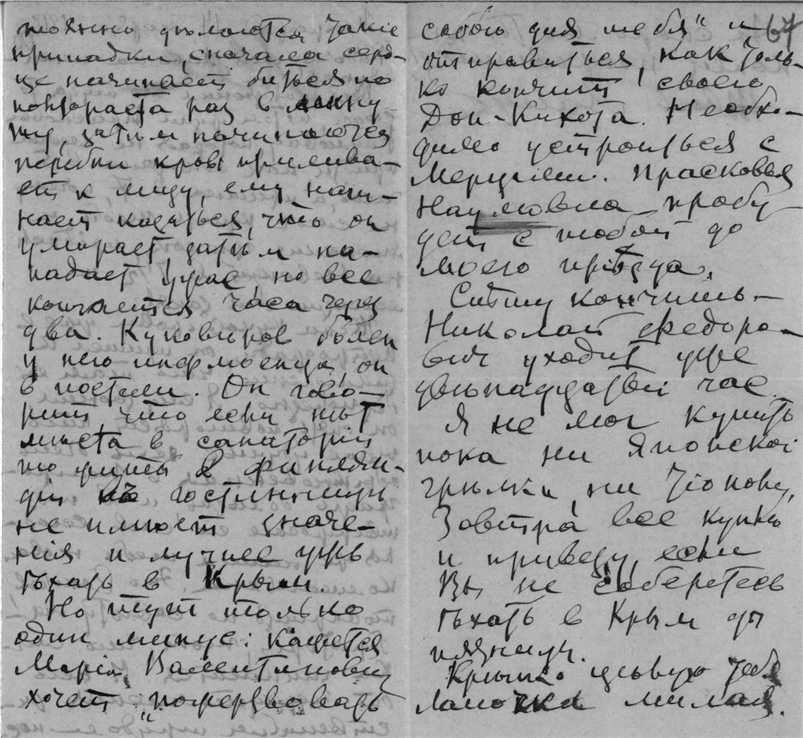 должно делаются такіе
припадки, сначала серд-
це начинаетъ биться по
полтораста разъ в минуту
ту, затѣм начинаются
перебои кровь прилива-
ет к лицу, ему начи-
нает казаться, что он
умирает, затѣм на-
падает ужас, но все
кончается часа через
два. Куповъров болен
у него инфлюенца, он
в постели. Он гово-
рит что если нѣт
мѣста в санаторіи
то жить в Финлян-
діи въ гостинницѣ
не имѣет значе-
нія и лучше ужъ
ѣхать в Крым.
Но тут только
один минус: кажется
Марія Валентиновна
хочет "пожертвовать
67
собою для тебя" и
отправиться, как толь-
ко кончит своего
Дон-Кихота. Необхо-
димо устроиться с
Мерцием. Прасковья
Наумовна пробу-
дет с тобой до
моего пріѣзда.
Сѣтку кончишь-
Николай Федоро-
вич уходит уже
двѣнадцатый час.
Я не мог купить
пока ни Японской
грѣлки, ни
Завтра все куплю
и привезу, если
Вы не соберетесь
ѣхать в Крым до
пятницы.
Крѣпко цѣлую тебя
Лапочка милая.